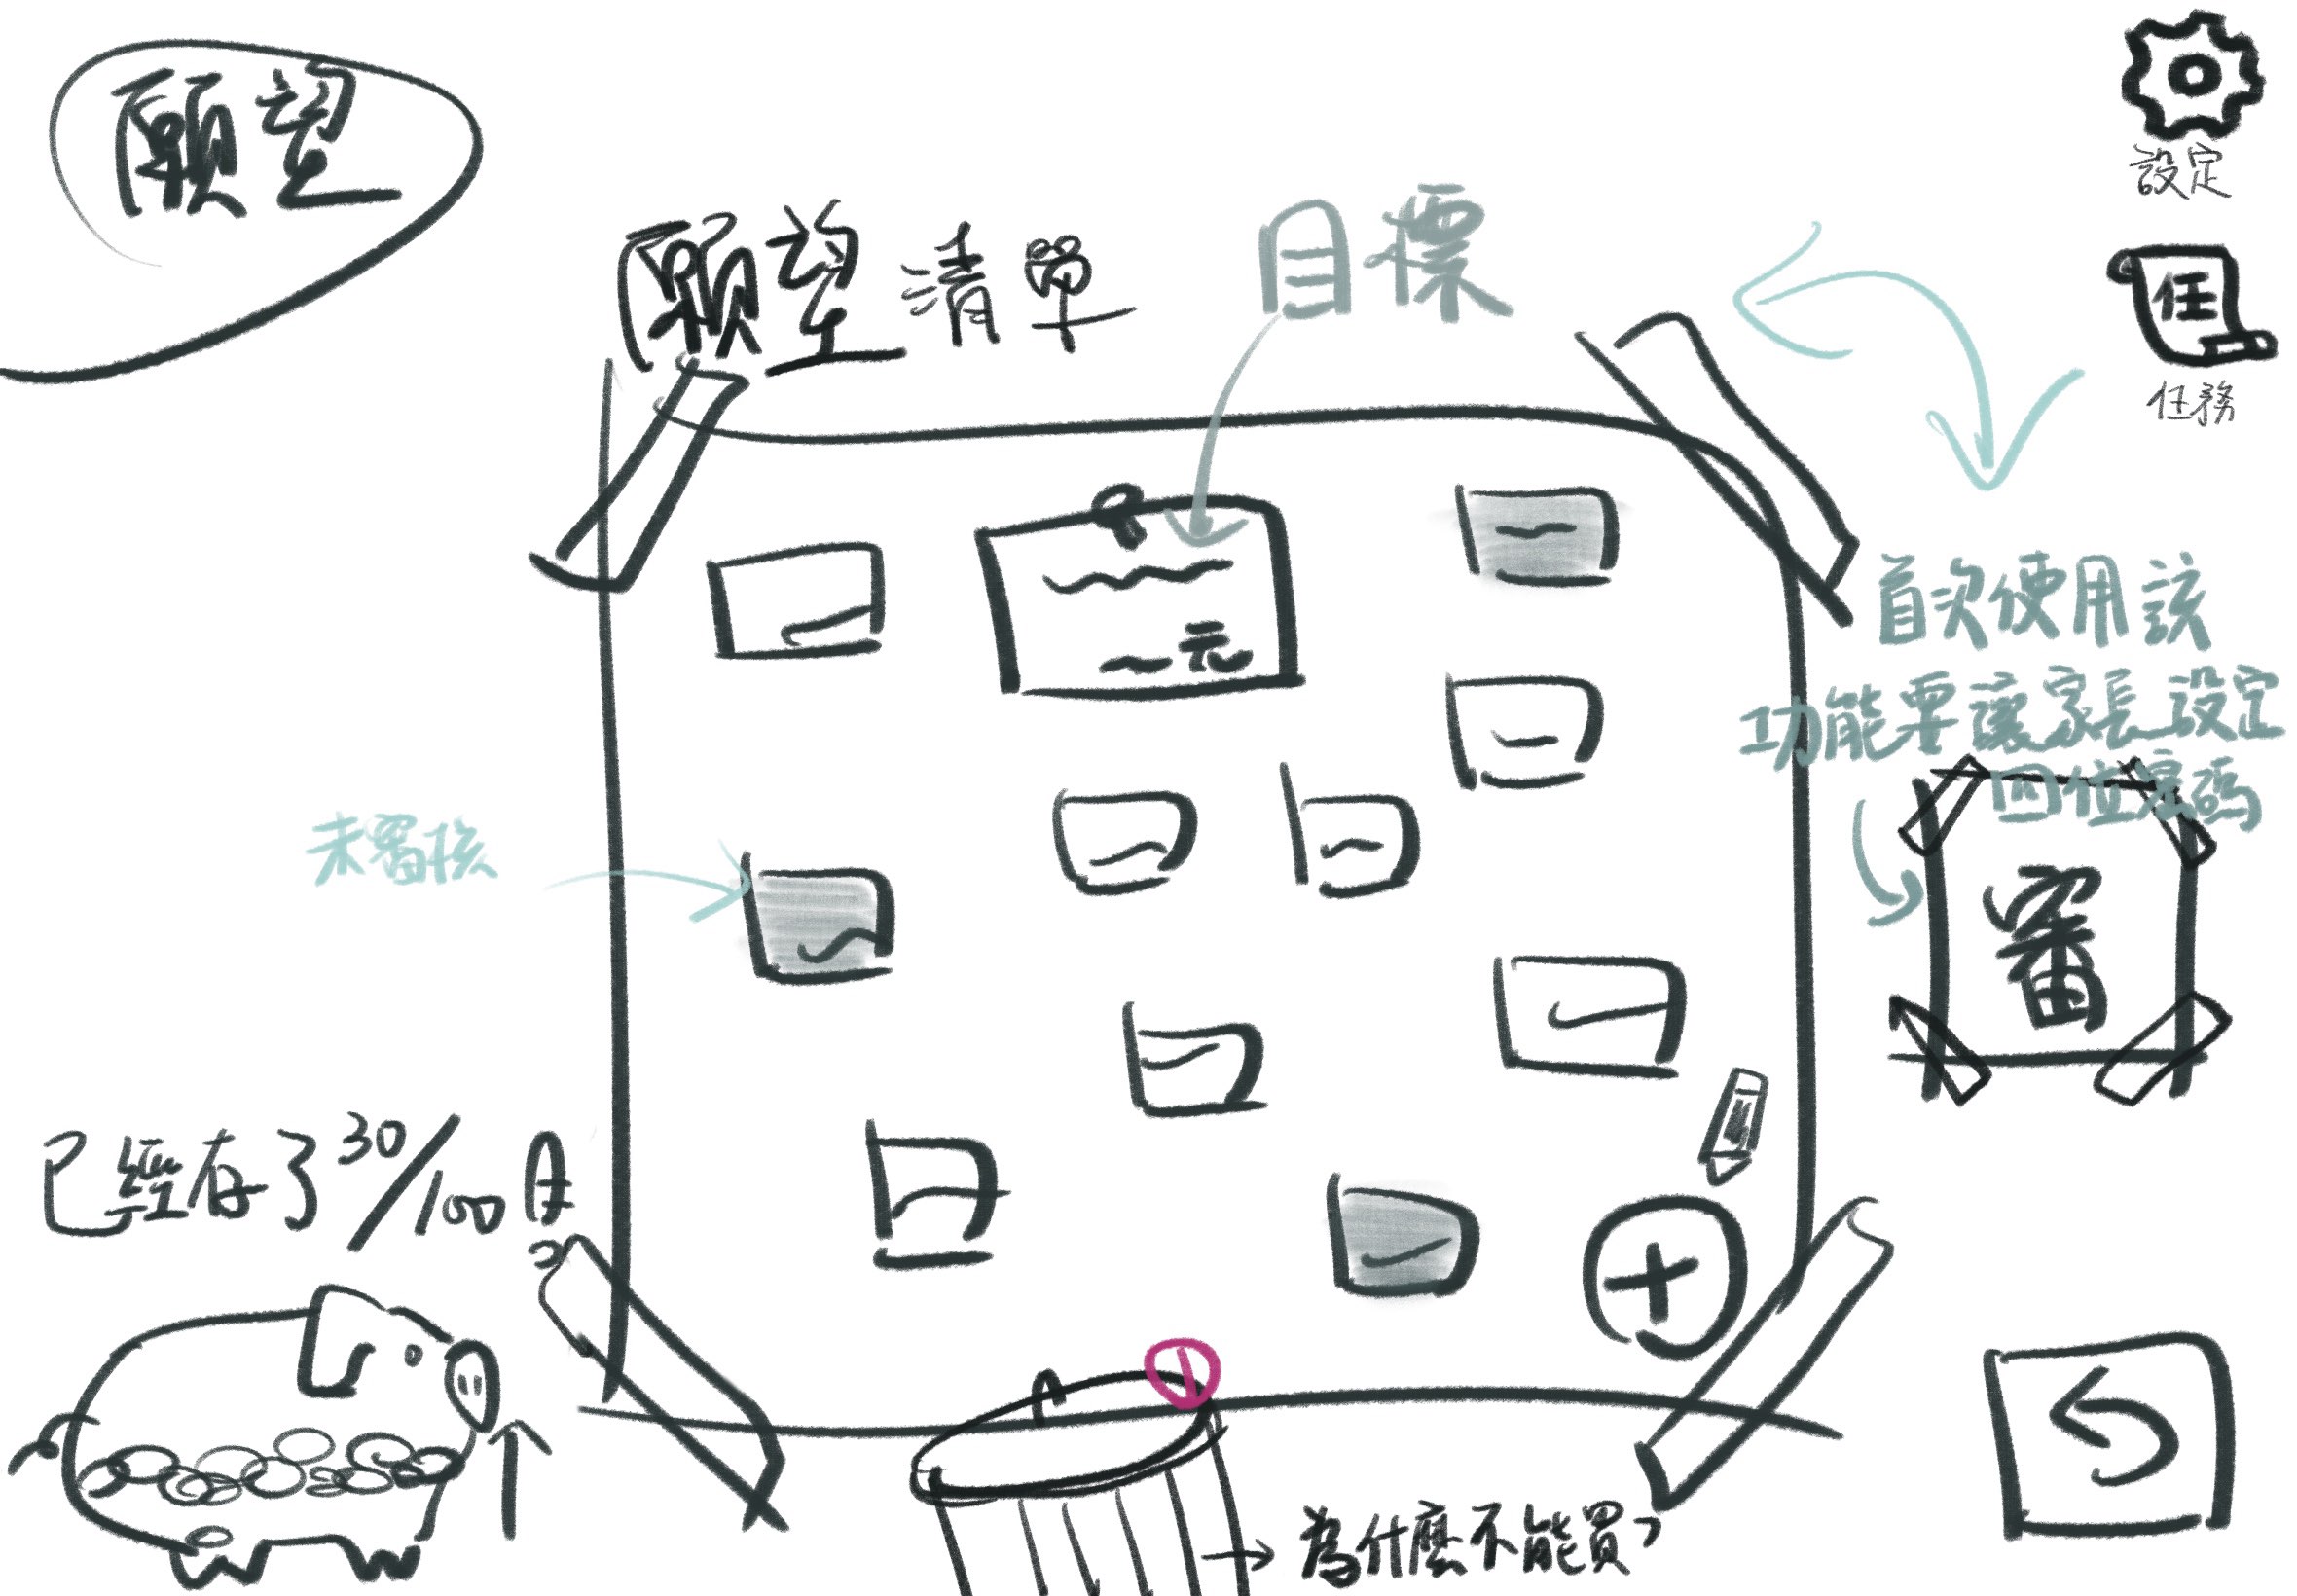 願望
設定
願望清單
目標
任
任務
元
首次使用該
功能要讓家長設定
四位密碼
未審核
審
已經存了30/100
為什麼不能買?